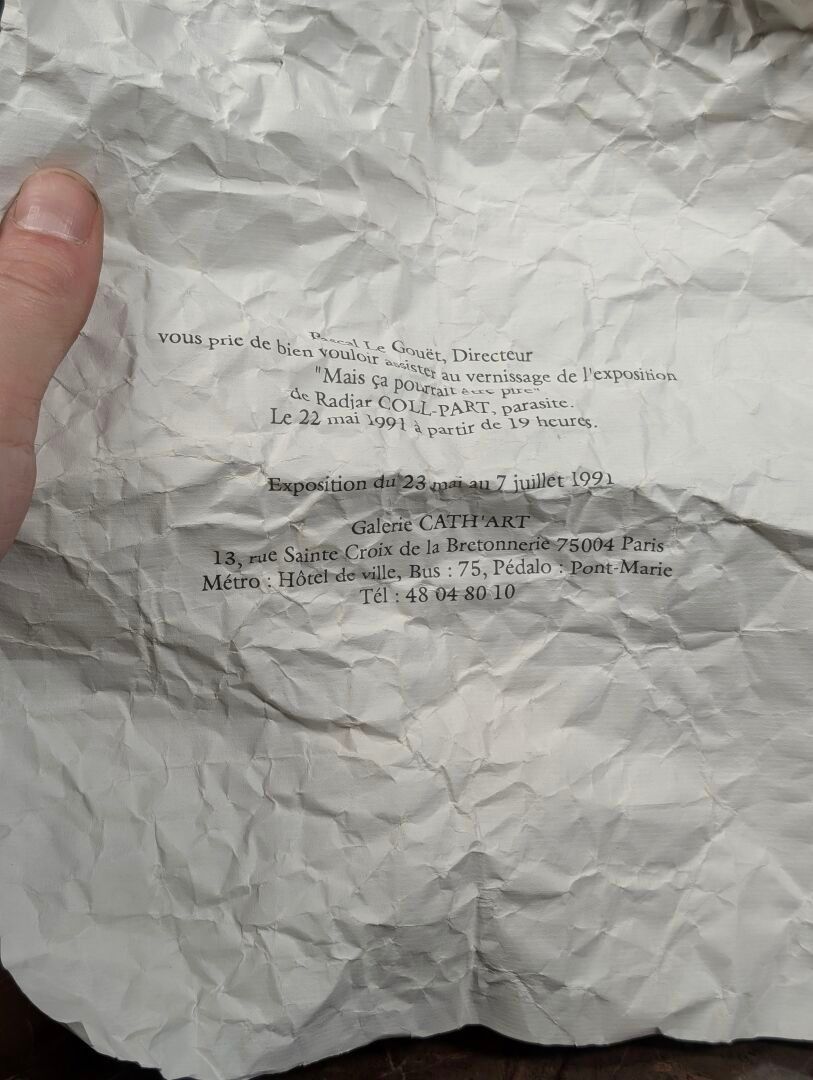 Pascal Le Gouët, Directeur
vous prie de bien vouloir assister au vernissage de l'exposition
"Mais ça pourrait être pire"
de Radjar COLL-PART, parasite.
Le 22 mai 1991 à partir de 19 heures.
Exposition du 23 mai au 7 juillet 1991
Galerie CATH'ART
13, rue Sainte Croix de la Bretonnerie 75004 Paris
Métro : Hôtel de ville, Bus : 75, Pédalo : Pont-Marie
Tél : 48 04 80 10